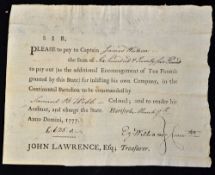 S I R,
PLEASE to pay to Captain Samuel
the Sum of Six hundred & Twenty five Pounds
to pay out the additional Encouragement of Ten Pounds
granted by this State for inlisting his own Company, in
the Continental Battalion to be commanded by
Samuel B Webb Colonel; and to render his
Account, and charge the State. Hartford, March
Anno Domini, 1777.
£ 625
JOHN LAWRENCE, Esq; Treasurer.